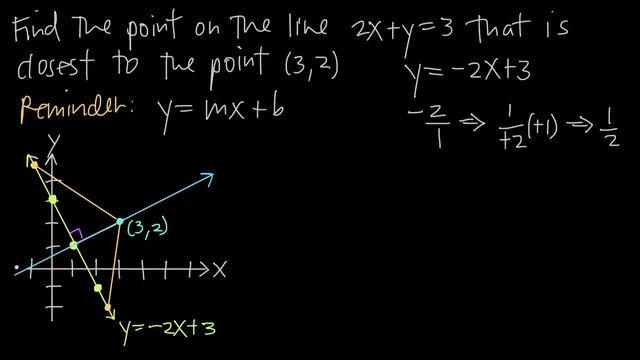 Find the point on the line 2x+y=3 that is
closest to the point (3,2)
y=-2x+3
Reminder: y=mx+b
-2/1 ⇒ 1/+2 (+1) ⇒ 1/2
Y
(3,2)
X
y=-2x+3